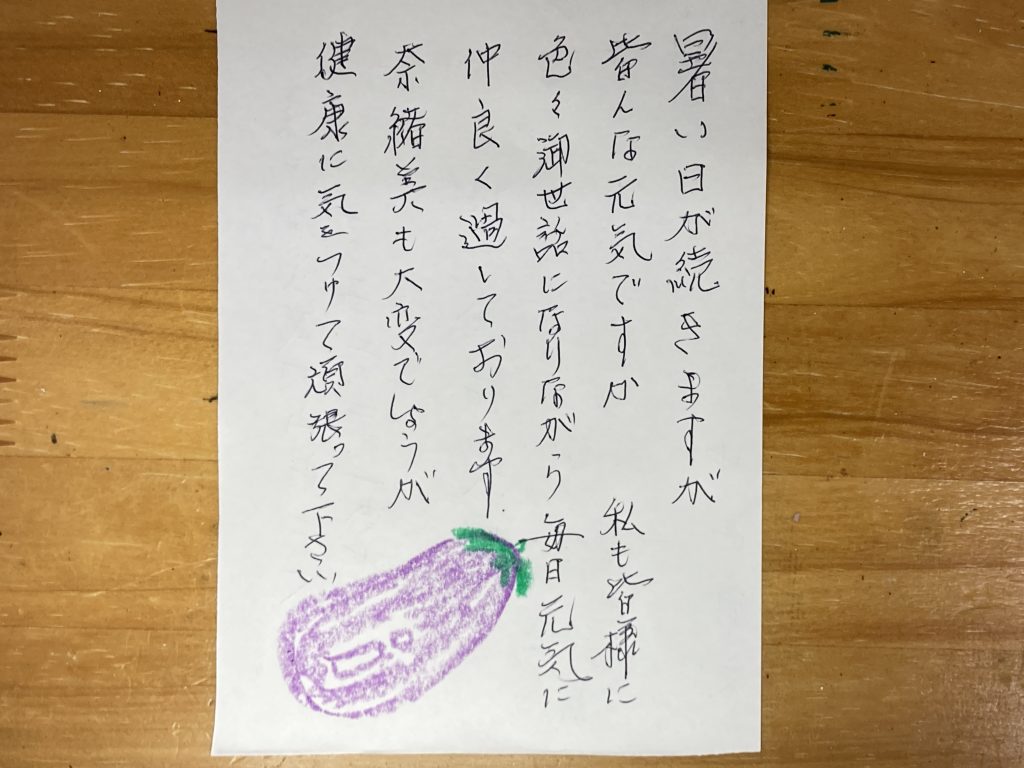 暑い日が続きますが
皆んな元気ですか 私も皆様に
色々御世話になりながら毎日元気に
仲良く過しております.
奈緒美も大変でしょうが
健康に気をつけて頑張って下さい